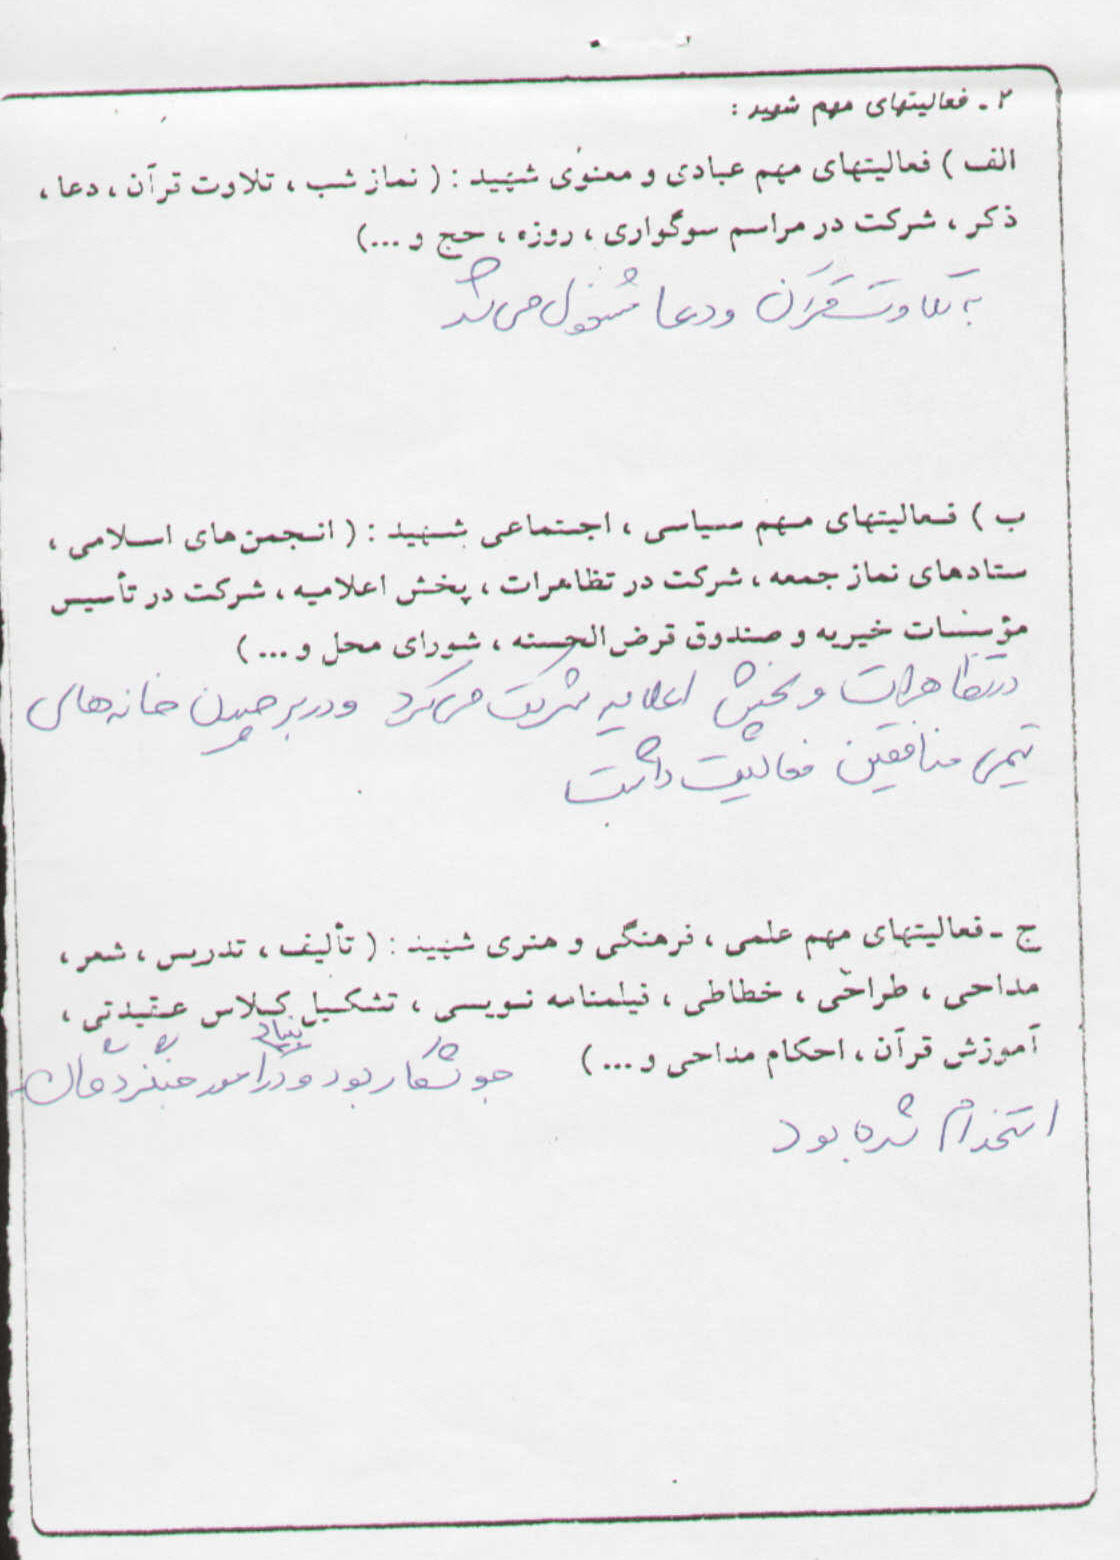 ۲ - فعالیتهای مهم شهید :
الف ) فعالیتهای مهم عبادی و معنوی شهید : ( نماز شب ، تلاوت قرآن ، دعا ،
ذکر ، شرکت در مراسم سوگواری ، روزه ، حج و ...)
به تلاوت قرآن ودعا مشغول می شد
ب ) فعالیتهای مهم سیاسی ، اجتماعی شهید : ( انجمن‌های اسلامی ،
ستادهای نماز جمعه ، شرکت در تظاهرات ، پخش اعلامیه ، شرکت در تأسیس
مؤسسات خیریه و صندوق قرض‌الحسنه ، شورای محل و ... )
در تظاهرات و پخش اعلامیه شرکت می کرد و در بر چیدن خانه های
تیمی منافقین فعالیت داشت
ج - فعالیتهای مهم علمی ، فرهنگی و هنری شهید : ( تألیف ، تدریس ، شعر ،
مداحی ، طراحی ، خطاطی ، فیلمنامه نویسی ، تشکیل کلاس عقیدتی ،
آموزش قرآن ، احکام مداحی و ... )
جوشکار بود و در بنیاد امور جنگزدگان
استخدام شده بود